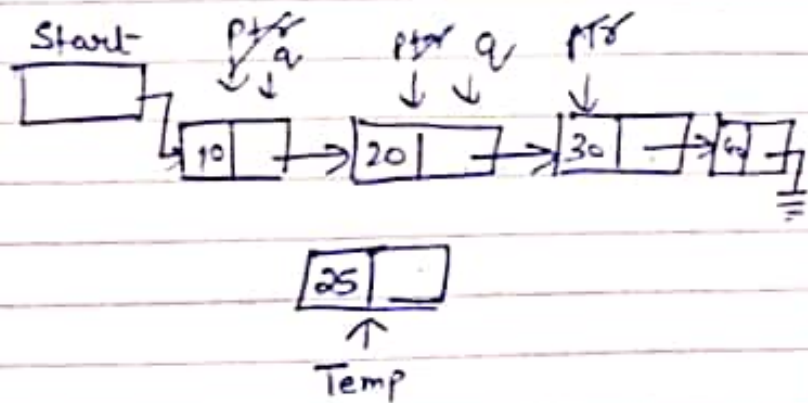 Start ptr q ptr q ptr
10 20 30 40
25
Temp